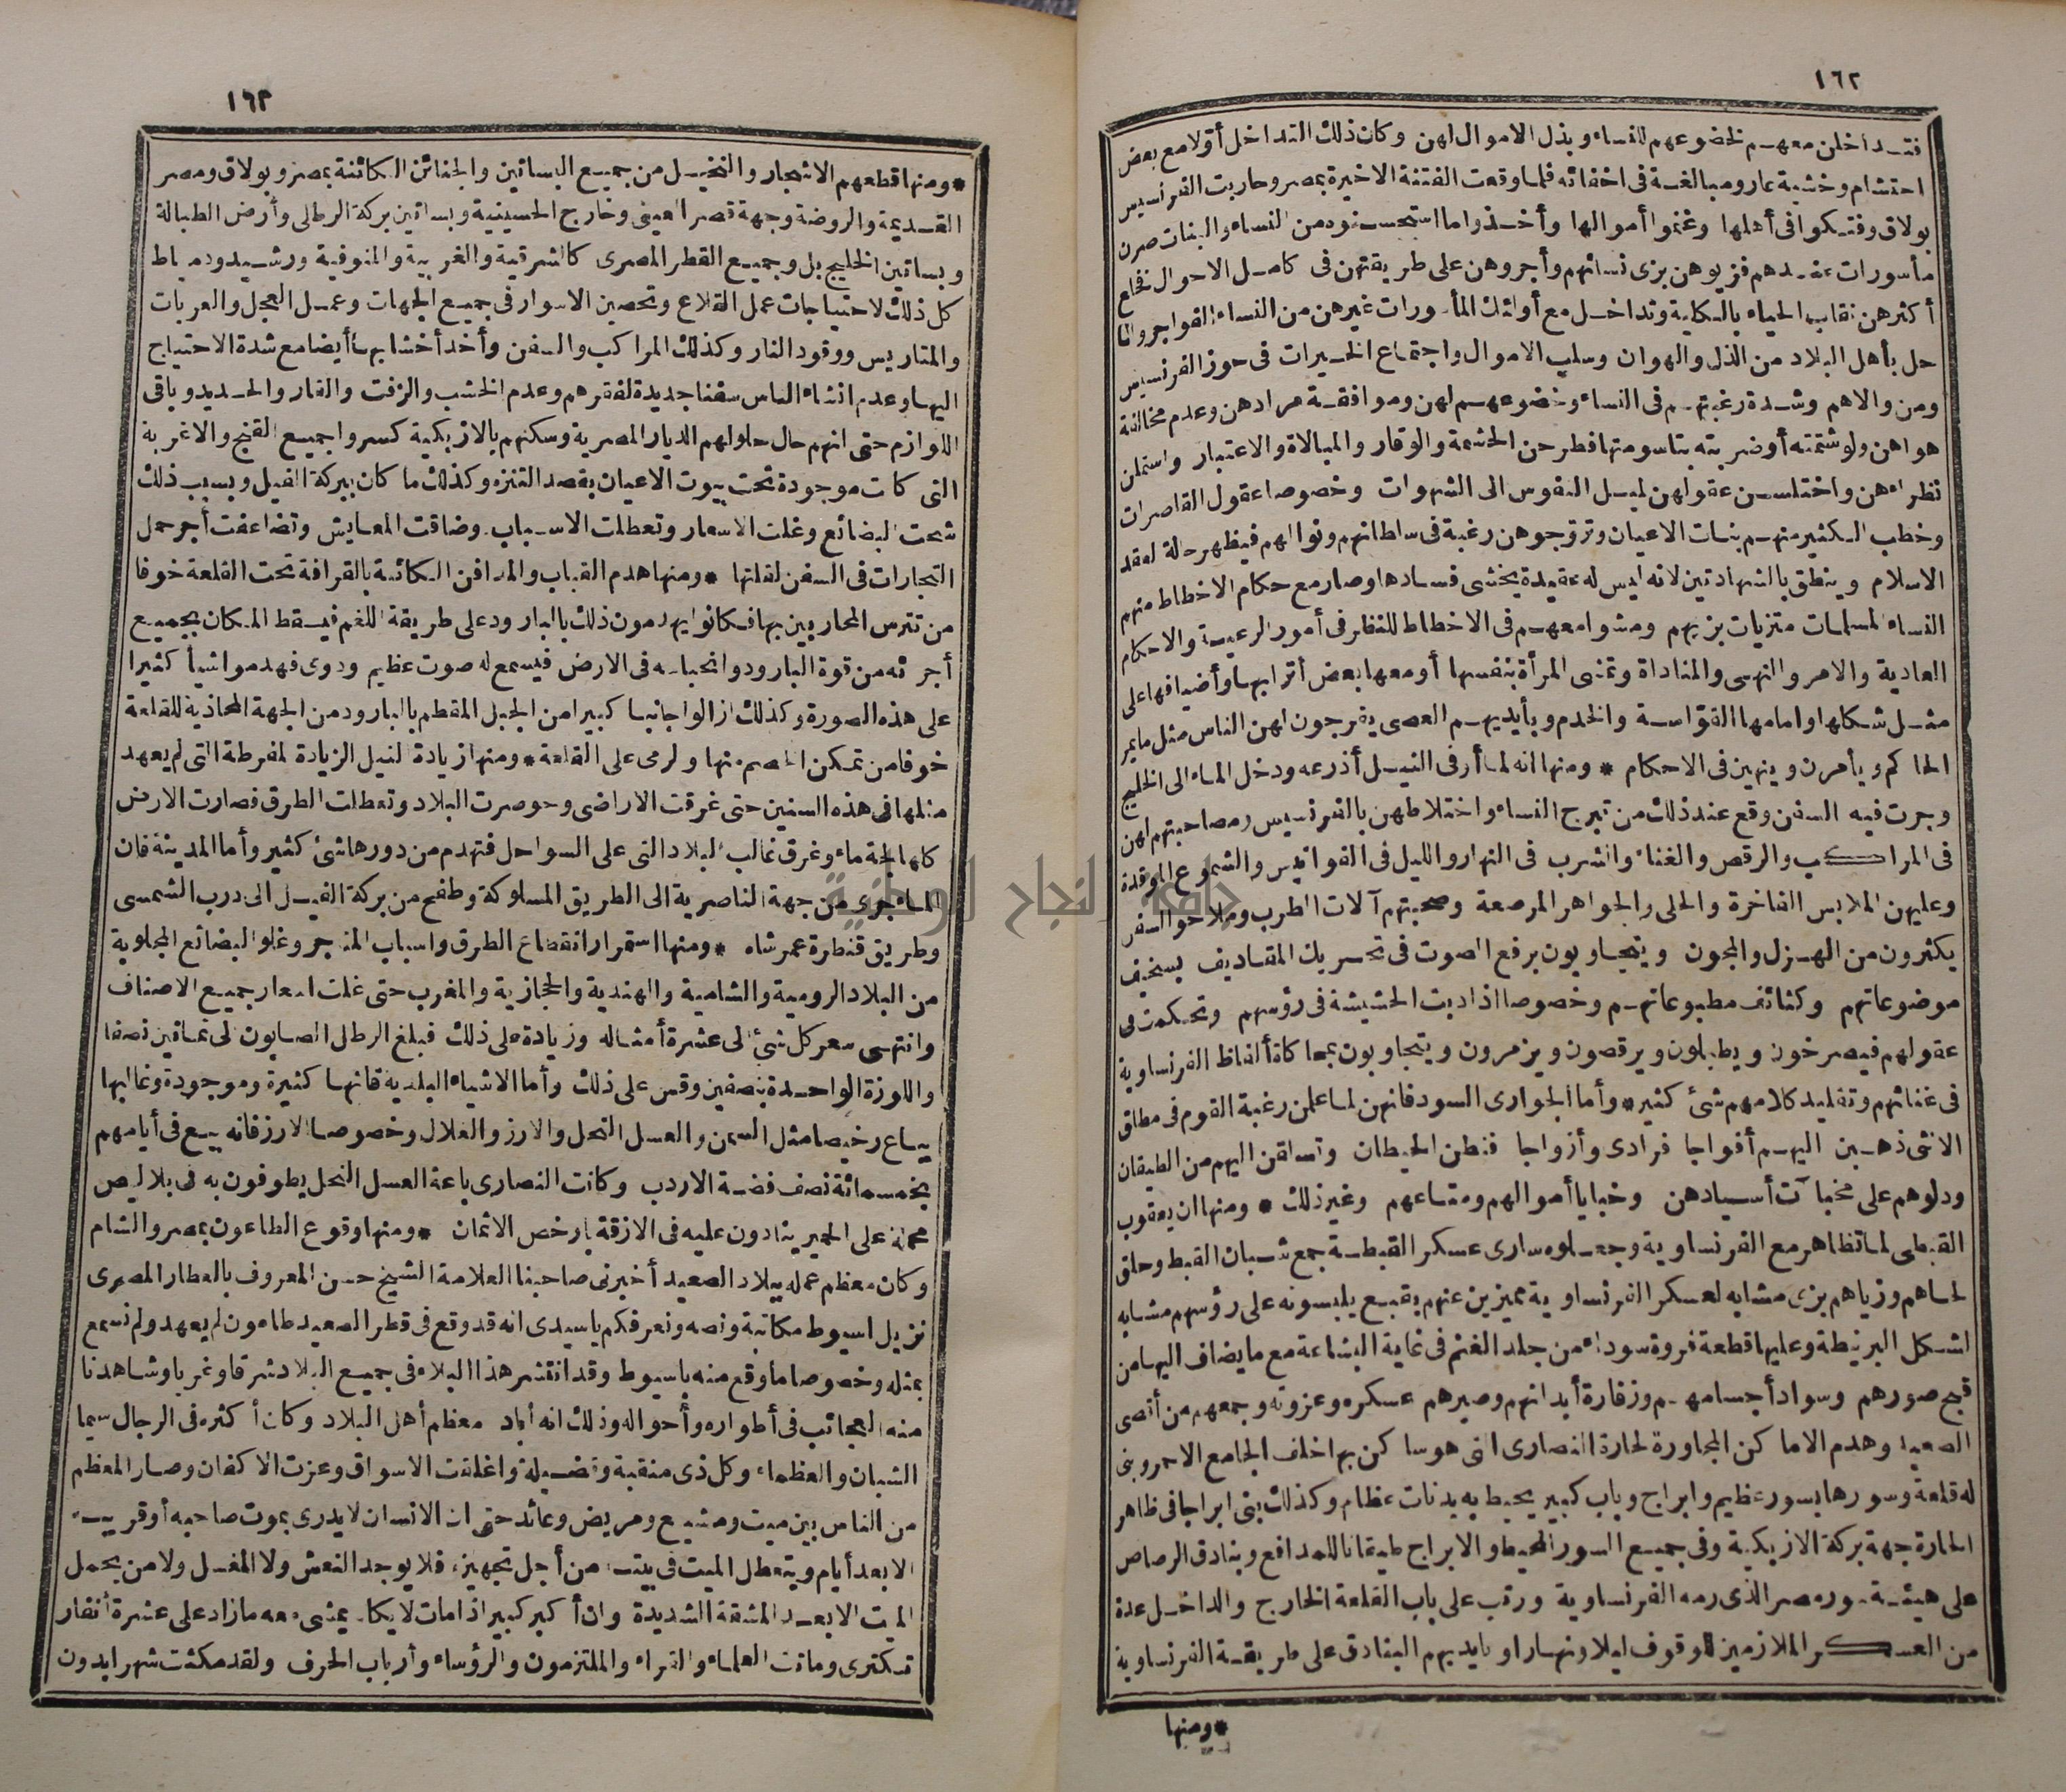 ١٦٢
فتداخلن معهم لخضوعهم للنساء وبذل الاموال لهن وكان ذلك التداخل أولا مع بعض
احتشام وخشية عار ومبالغة في اخفائه فلما وقعت الفتنة الاخيرة بمصر وحاربت الفرنسيس
بولاق وفتكوا في أهلها وغنموا أموالها وأخذوا ما استحسنوه من النساء والبنات صرن
مأسورات عندهم فزيوهن بزى نسائهم وأجروهن على طريقتهن في كامل الاحوال فخلع
أكثرهن نقاب الحياء بالكلية وتداخل مع أولئك المأسورات غيرهن من النساء الفواجر ولما
حل بأهل البلاد من الذل والهوان وسلب الاموال واجتماع الخيرات في حوز الفرنسيس
ومن والاهم وشدة رغبتهم في النساء وخضوعهم لهن وموافقة مرادهن وعدم مخالفة
هواهن ولو شتمته أو ضربته بتاسومتها فطرحن الحشمة والوقار والمبالاة والاعتبار واستملن
نظراءهن واختلسن عقولهن لميل النفوس الى الشهوات وخصوصا عقول القاصرات
وخطب الكثير منهم بنات الاعيان وتزوجوهن رغبة في سلطانهم ونوالهم فيظهر حالة العقد
الاسلام وينطق بالشهادتين لانه ليس له عقيدة يخشى فسادها وصار مع حكام الاخطاط منهم
النساء المسلمات متزيات بزيهم ومشوا معهم في الاخطاط للنظر في أمور الرعية والاحكام
العادية والامر والنهى والمناداة وتمشى المرأة بنفسها أو معها بعض أترابها وأضيافها على
مثل شكلها وامامها القواسة والخدم وبأيديهم العصى يفرجون لهن الناس مثل ما يمر
الحاكم ويأمرن وينهين في الاحكام * ومنها انه لما أوفى النيل أذرعه ودخل الماء الى الخليج
وجرت فيه السفن وقع عند ذلك من تبرج النساء واختلاطهن بالفرنسيس ومصاحبتهم لهن
في المراكب والرقص والغناء والشرب في النهار والليل في الفوانيس والشموع الموقدة
وعليهن الملابس الفاخرة والحلى والجواهر المرصعة وصحبتهم آلات الطرب وملاحو السفن
يكثرون من الهزل والمجون ويتجاوبون برفع الصوت في تحريك المقاديف بسخيف
موضوعاتهم وكثائف مطبوعاتهم وخصوصا اذا دبت الحشيشة في رؤسهم وتحكمت في
عقولهم فيصرخون ويطبلون ويرقصون ويزمرون ويتجاوبون بمحاكاة ألفاظ الفرنساوية
في غنائهم وتقليد كلامهم شئ كثير * وأما الجوارى السود فانهن لما علمن رغبة القوم في مطلق
الانثى ذهبن اليهم أفواجا فرادى وأزواجا فنطن الحيطان وتسلقن اليهم من الطيقان
ودلوهم على مخبآت أسيادهن وخبايا أموالهم ومتاعهم وغير ذلك * ومنها ان يعقوب
القبطى لما تظاهر مع الفرنساوية وجعلوه سارى عسكر القبطة جمع شبان القبط وحلق
لحاهم وزياهم بزى مشابه لعسكر الفرنساوية مميزين عنهم بقبع يلبسونه على رؤسهم مشابه
لشكل البرنيطة وعليها قطعة فروة سوداء من جلد الغنم في غاية البشاعة مع ما يضاف اليها من
قبح صورهم وسواد أجسامهم وزفارة أبدانهم وصيرهم عسكره وعزوته وجمعهم من أقصى
الصعيد وهدم الاماكن المجاورة لحارة النصارى التى هو ساكن بها خلف الجامع الاحمر وبنى
له قلعة وسورها بسور عظيم وابراج وباب كبير يحيط به بدنات عظام وكذلك بنى ابراجا في ظاهر
الحارة جهة بركة الازبكية وفى جميع السور المحيط والابراج طيقانا للمدافع وبنادق الرصاص
على هيئة سور مصر الذى رمه الفرنساوية ورتب على باب القلعة الخارج والداخل عدة
من العسكر الملازمين للوقوف ليلا ونهارا وبايديهم البنادق على طريقة الفرنساوية
* ومنها
١٦٣
* ومنها قطعهم الاشجار والنخيل من جميع البساتين والجنائن الكائنة بمصر وبولاق ومصر
القديمة والروضة وجهة قصر العينى وخارج الحسينية وبساتين بركة الرطلى وأرض الطبالة
وبساتين الخليج بل وجميع القطر المصرى كالشرقية والغربية والمنوفية ورشيد ودمياط
كل ذلك لاحتياجات عمل القلاع وتحصين الاسوار في جميع الجهات وعمل العجل والعربات
والمتاريس ووقود النار وكذلك المراكب والسفن وأخذ أخشابها أيضا مع شدة الاحتياج
اليها وعدم انشاء الناس سفنا جديدة لفقرهم وعدم الخشب والزفت والقار والحديد وباقى
اللوازم حتى انهم حال حلولهم الديار المصرية وسكنهم بالازبكية كسروا جميع القنج والاغربة
التى كانت موجودة تحت بيوت الاعيان بقصد التنزه وكذلك ما كان ببركة الفيل وبسبب ذلك
شحت البضائع وغلت الاسعار وتعطلت الاسباب وضاقت المعايش وتضاعفت أجر حمل
التجارات في السفن لقلتها * ومنها هدم القباب والمدافن الكائنة بالقرافة تحت القلعة خوفا
من تترس المحاربين بها فكانوا يهدمون ذلك بالبارود على طريقة اللغم فيسقط المكان بجميع
أجزائه من قوة البارود وانحباسه في الارض فيسمع له صوت عظيم ودوى فهدموا شيأ كثيرا
على هذه الصورة وكذلك ازالوا جانبا كبيرا من الجبل المقطم بالبارود من الجهة المحاذية للقلعة
خوفا من تمكن الخصم منها والرمى على القلعة * ومنها زيادة النيل الزيادة المفرطة التى لم يعهد
مثلها في هذه السنين حتى غرقت الاراضى وحوصرت البلاد وتعطلت الطرق فصارت الارض
كلها لجة ماء وغرق غالب البلاد التى على السواحل فتهدم من دورها شئ كثير وأما المدينة فان
الماء جرى من جهة الناصرية الى الطريق المسلوكة وطفح من بركة الفيل الى درب الشمسى
وطريق قنطرة عمر شاه * ومنها استمرار انقطاع الطرق واسباب المتجر وغلو البضائع المجلوبة
من البلاد الرومية والشامية والهندية والحجازية والمغرب حتى غلت اسعار جميع الاصناف
وانتهى سعر كل شئ الى عشرة أمثاله وزيادة على ذلك فبلغ الرطل الصابون الى ثمانين نصفا
واللوزة الواحدة بنصفين وقس على ذلك وأما الاشياء البلدية فانها كثيرة وموجودة وغالبها
يباع رخيصا مثل السمن والعسل النحل والارز والغلال وخصوصا الارز فانه بيع في أيامهم
بخمسمائة نصف فضة الاردب وكانت النصارى باعة العسل النحل يطوفون به في بلاليص
محملة على الحمير ينادون عليه في الازقة بارخص الاثمان * ومنها وقوع الطاعون بمصر والشام
وكان معظم عمله ببلاد الصعيد أخبرنى صاحبنا العلامة الشيخ حسن المعروف بالعطار المصرى
نزيل اسيوط مكاتبة ونصه ونعرفكم يا سيدى انه قد وقع في قطر الصعيد طاعون لم يعهد ولم نسمع
بمثله وخصوصا ما وقع منه باسيوط وقد انتشر هذا البلاء في جميع البلاد شرقا وغربا وشاهدنا
منه العجائب في أطواره وأحواله وذلك انه أباد معظم أهل البلاد وكان أكثره في الرجال سيما
الشبان والعظماء وكل ذى منقبة وفضيلة واغلقت الاسواق وعزت الاكفان وصار المعظم
من الناس بين ميت ومشيع ومريض وعائد حتى ان الانسان لا يدرى بموت صاحبه أو قريبه
الا بعد أيام ويتعطل الميت في بيته من أجل تجهيزه فلا يوجد النعش ولا المغسل ولا من يحمل
الميت الا بعد المشقة الشديدة وان أكبر كبير اذا مات لا يكاد يمشى معه ما زاد على عشرة أنفار
تكترى وماتت العلماء والقراء والملتزمون والرؤساء وأرباب الحرف ولقد مكثت شهرا بدون
جامعة النجاح الوطنية